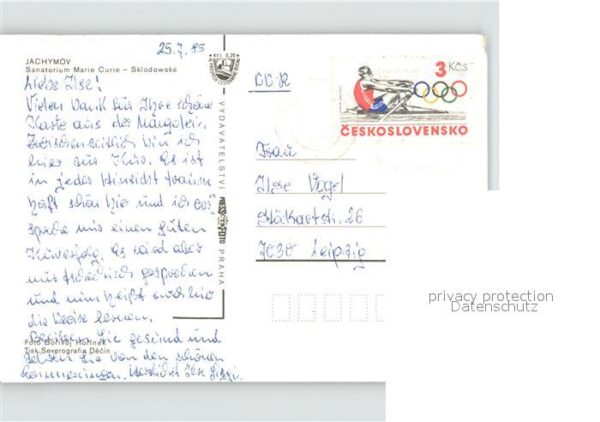 25.7.85
JÁCHYMOV
Sanatorium Marie Curie – Sklodowske
Liebe Ilse!
Vielen Dank für Ihre schöne
Karte aus der
bin ich
hier zur Kur. Es ist
in jeder Hinsicht traum
haft schön hier und ich
spreche mir einen guten
Kurerfolg. Es wird aber
nur tschechisch gesprochen
und nun heißt
die
Bleiben Sie gesund und
Sie von den schönen
Erinnerungen. Herzlichst Ihre
Foto Bořivoj Hořínek
Tisk Severografia Děčín
VYDAVATELSTVÍ PRESSFOTO PRAHA
DDR
3 Kčs
ČESKOSLOVENSKO
Frau
Ilse Vogel
26
7030 Leipzig
privacy protection
Datenschutz